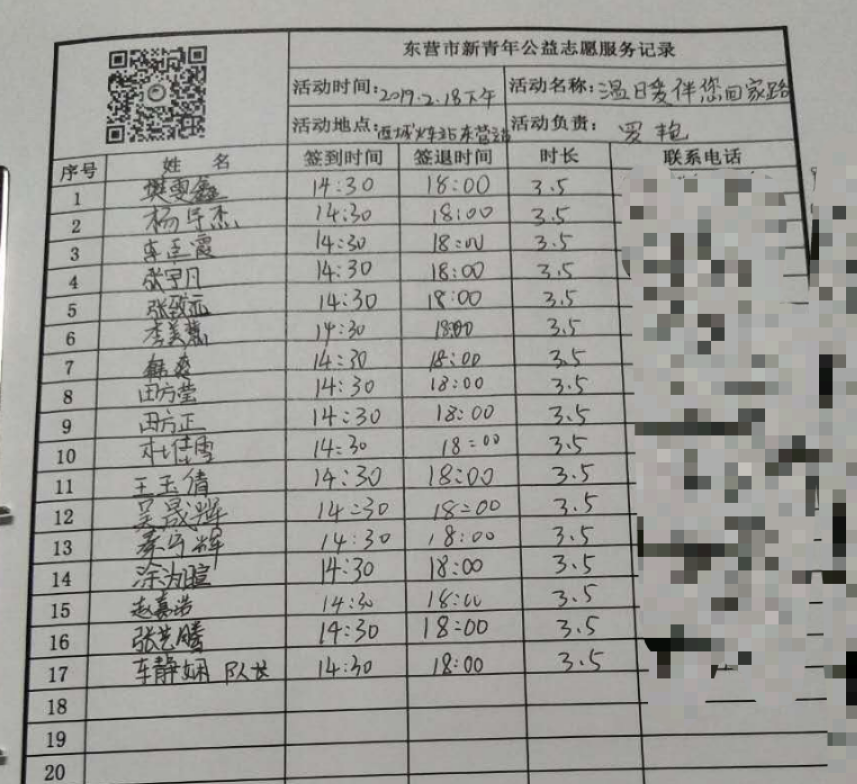 东营市新青年公益志愿服务记录
活动时间：2019.2.18下午 活动名称：温日爱伴您回家路
活动地点：西城火车站东营站 活动负责：罗艳
序号 姓名 签到时间 签退时间 时长 联系电话
1 樊雯鑫 14:30 18:00 3.5
2 杨 杰 14:30 18:00 3.5
3 霞 14:30 18:00 3.5
4 张宇月 14:30 18:00 3.5
5 张致远 14:30 18:00 3.5
6 李美慧 14:30 18:00 3.5
7 韩爽 14:30 18:00 3.5
8 田方莹 14:30 18:00 3.5
9 田方正 14:30 18:00 3.5
10 杜佳雪 14:30 18:00 3.5
11 王玉倩 14:30 18:00 3.5
12 吴晟 14:30 18:00 3.5
13 秦宁辉 14:30 18:00 3.5
14 涂为暄 14:30 18:00 3.5
15 赵嘉浩 14:30 18:00 3.5
16 张艺腾 14:30 18:00 3.5
17 车静娴 队长 14:30 18:00 3.5
18
19
20